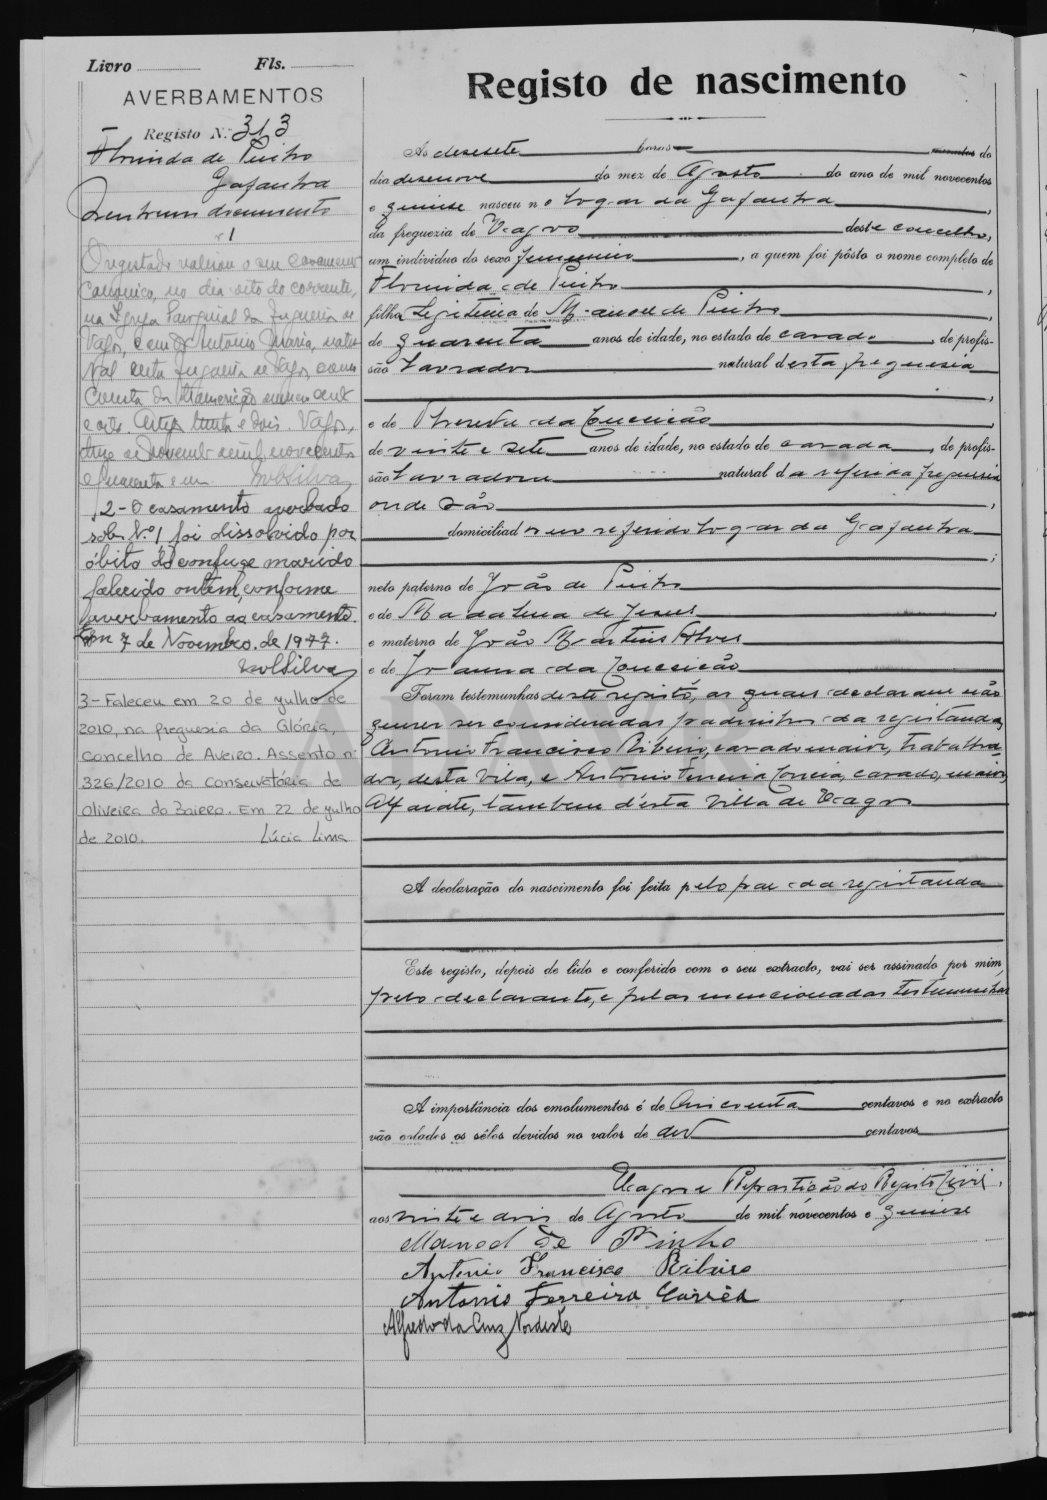 Livro Fls.
AVERBAMENTOS
Registo N.º 313
Florinda de Pinho
Gafanha
Tem hum documento
1
O registado celebrou o seu casamento
canonico, no dia oito do corrente,
na Igreja Paroquial da freguesia de
Vagos, com Antonio Maria, natu
ral desta freguesia de Vagos, como
Consta da transcrição numero cento
e oito. Vagos,
treze de Novembro de mil novecentos
e quarenta e um
2-O casamento averbado
sob N.º 1 foi dissolvido por
óbito do conjuge marido
falecido ontem, conforme
averbamento ao casamento.
Em 7 de Novembro de 1977.
3-Faleceu em 20 de yulho de
2010, na freguesia da Glória,
concelho de Aveiro. Assento nº
326/2010 da Conservatória de
Oliveira do Bairro. Em 22 de yulho
de 2010. Lúcia Lima
Registo de nascimento
As desesete horas minutos do
dia desenove do mez de Agosto do ano de mil novecentos
e quinse nasceu no logar da Gafanha,
da freguezia de Vagos deste concelho,
um individuo do sexo femenino, a quem foi pôsto o nome completo de
Florinda de Pinho,
filha Legitima de Manoel de Pinho,
de quarenta anos de idade, no estado de casado, de profis-
são Lavrador natural desta freguesia,
e de Thereza da Conceição,
de vinte e sete anos de idade, no estado de casada, de profis-
são Lavradora natural da referida freguesia
onde são,
domiciliados no referido logar da Gafanha;
neto paterno de João de Pinho
e de Madalena de Jesus,
e materno de João Martins Alves
e de Joanna da Conceição
Foram testemunhas deste registo, as quaes declaram não
querer ser consideradas padrinhos da registanda,
Antonio Francisco Ribeiro, casado maior, trabalha-
dor, desta Vila, e Antonio Ferreira Correia, casado, maior,
Alfaiate, tambem d'esta Villa de Vagos
A declaração do nascimento foi feita pelo pae da registanda
Este registo, depois de lido e conferido com o seu extracto, vai ser assinado por mim,
pelo declarante, e pelas mencionadas testemunhas
A importância dos emolumentos é de cincoenta centavos e no extracto
vão colados os sêlos devidos no valor de dez centavos
Vagos e Repartição do Registo Civil,
aos vinte e dois de Agosto de mil novecentos e quinse
Manoel de Pinho
Antonio Francisco Ribeiro
Antonio Ferreira Corrêa
Alfredo da Cruz Nordeste